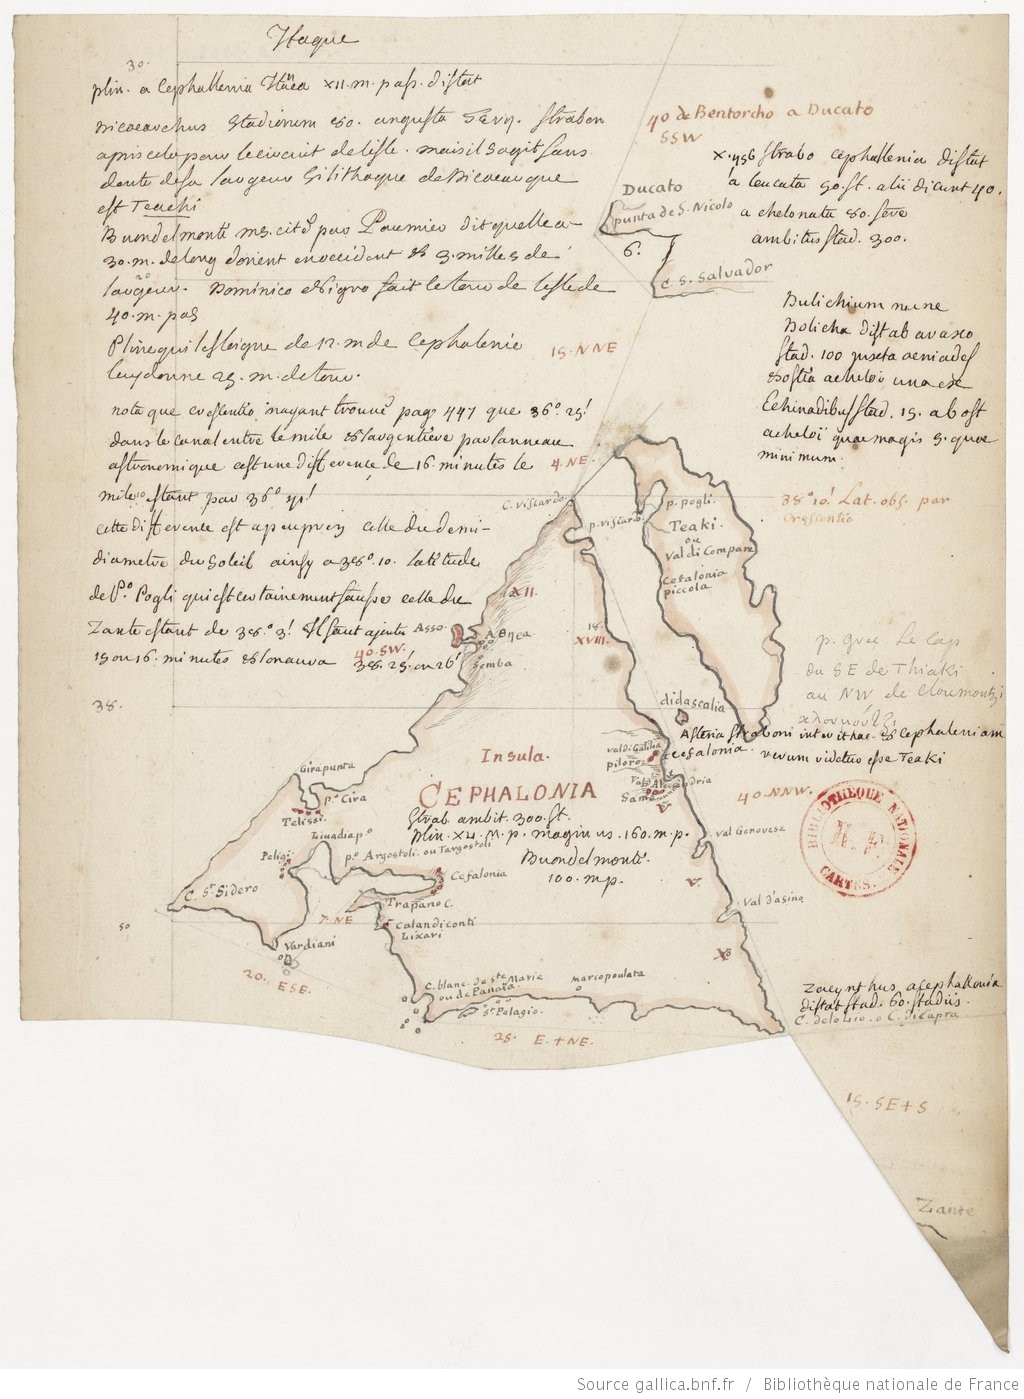 Itaque
30.
plin. a Cephallenia XII. m. pass. distat
Dicaearchus Stadiorum 80. angusta Strabon
a pris cela pour le circuit de l'isle. mais il s'agit sans
doute de sa largeur Si lithaque de Dicaearque
est Teachi
Buondelmonti ms. cité par Paumier dit quelle a
30. m. de long dorient en occident & 3. milles de
largeur. Dominico Nigro fait le tour de lisle de
40. m. pas
Pline qui lesloigne de 12. m. de Cephalenie
luy donne 25. m. de tour.
nota que crescentio ayant trouvé pag. 447 que 36°. 25'
dans le canal entre le mile & largentiere par lanneau
astronomique cest une difference de 16. minutes le
milo estant par 36° 41'
cette difference est a peu prez celle du demi-
diametre du Soleil ainsy a 38°. 10. latitude
de P°. Pogli qui est certainement celle du
Zante estant de 38°. 3' Il faut ajouter
15 ou 16. minutes & lon aura 38. 25' ou 26'
40 de Bentorcho a Ducato
SSW
X. 456 Strabo Cephallenia distat
a leucata 50. st. alii dicunt 40.
a chelonata 80. fere
ambitus stad. 300.
Ducato
punta de S. Nicolo
6.
C. S. Salvador
Dulichium nunc
Dolicha distab a naxo
Stad. 100 juxta aeniades
& ostia acheloi una ex
Echinadibus stad. 15. ab ost
acheloï quae magis 5. quae
minimum.
15. NNE
4. NE.
C. Viscardo
p. viscardo
p. pogli.
Teaki.
ou
Val di Compare
Cefalonia
piccola
38° 10' Lat. obs. par
Crescentio
XII.
18.
XVIII.
Asso.
Abnea
Semba
40. SW.
38.
p. grec Le Cap
du SE de Thiaki
au NW de Cloumoutzi
χλουμούτζι
didascalia
Asteria Straboni inter ithac. & Cephaleniam
verum videtur esse Teaki
val di Galilea
piloro
Cefalonia.
Val. Alessandria
Samo
V
40. NNW.
Insula.
CEPHALONIA
Strab. ambit. 300. st.
plin. XLI. M. p. maginus. 160. m. p.
Buondelmonti.
100. m p.
Girapunta
p° Cira
Telissi
Liuadia p°
Peligi
p° Argostoli ou Targostoli
Cefalonia
C. St. Sidero
Trapano C.
7. NE
Calandiconti
Lixari
50
Vardiani
20.
ESE.
C. blanc de Ste Marie
ou de Panora.
St Pelagio.
marcopoulata
val Genovese
V.
Val d'asino
X
Zacynthus a cephallenia
distat stad. 60. stadiis.
C. delo Lio. o C. di Capra
25. E.+NE.
15. SE+S
Zante
BIBLIOTHEQUE NATIONALE
CARTES.
Source gallica.bnf.fr / Bibliothèque nationale de France